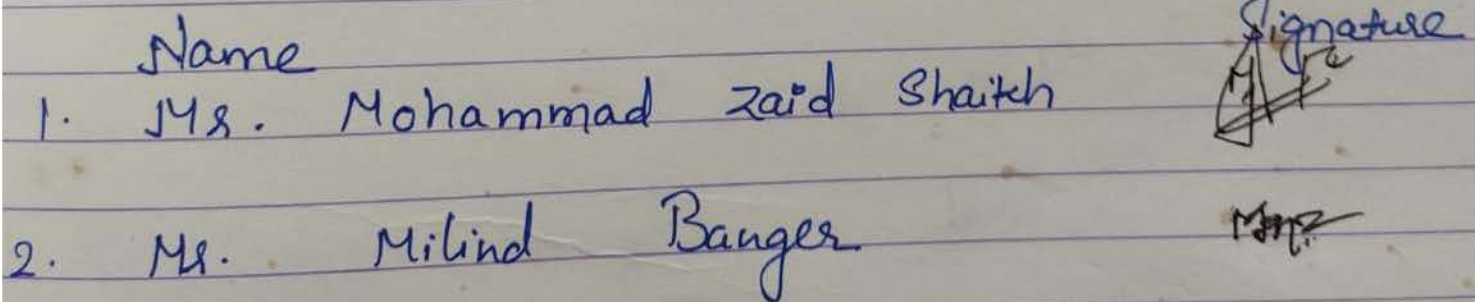 Name Signature
1. Mr. Mohammad Zaid Shaikh
2. Mr. Milind Banger